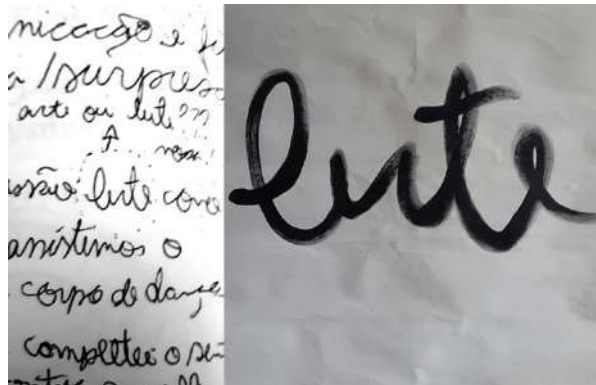 nicação e
/surpreso
arte ou lute ??
lute como
assistimos o
corpo de dança
completei o
lute